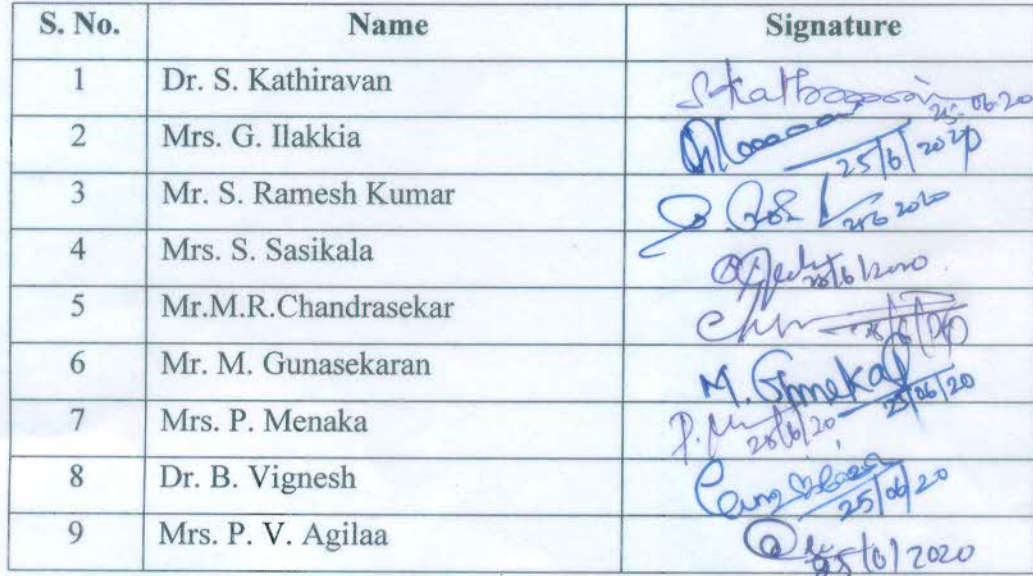 S. No. Name Signature
1 Dr. S. Kathiravan 25.06.20
2 Mrs. G. Ilakkia 25/6/2020
3 Mr. S. Ramesh Kumar 25/6 2020
4 Mrs. S. Sasikala 25/6/2020
5 Mr.M.R.Chandrasekar
6 Mr. M. Gunasekaran M. 25/06/20
7 Mrs. P. Menaka P. 25/6/20
8 Dr. B. Vignesh 25/06/20
9 Mrs. P. V. Agilaa 25/6/2020